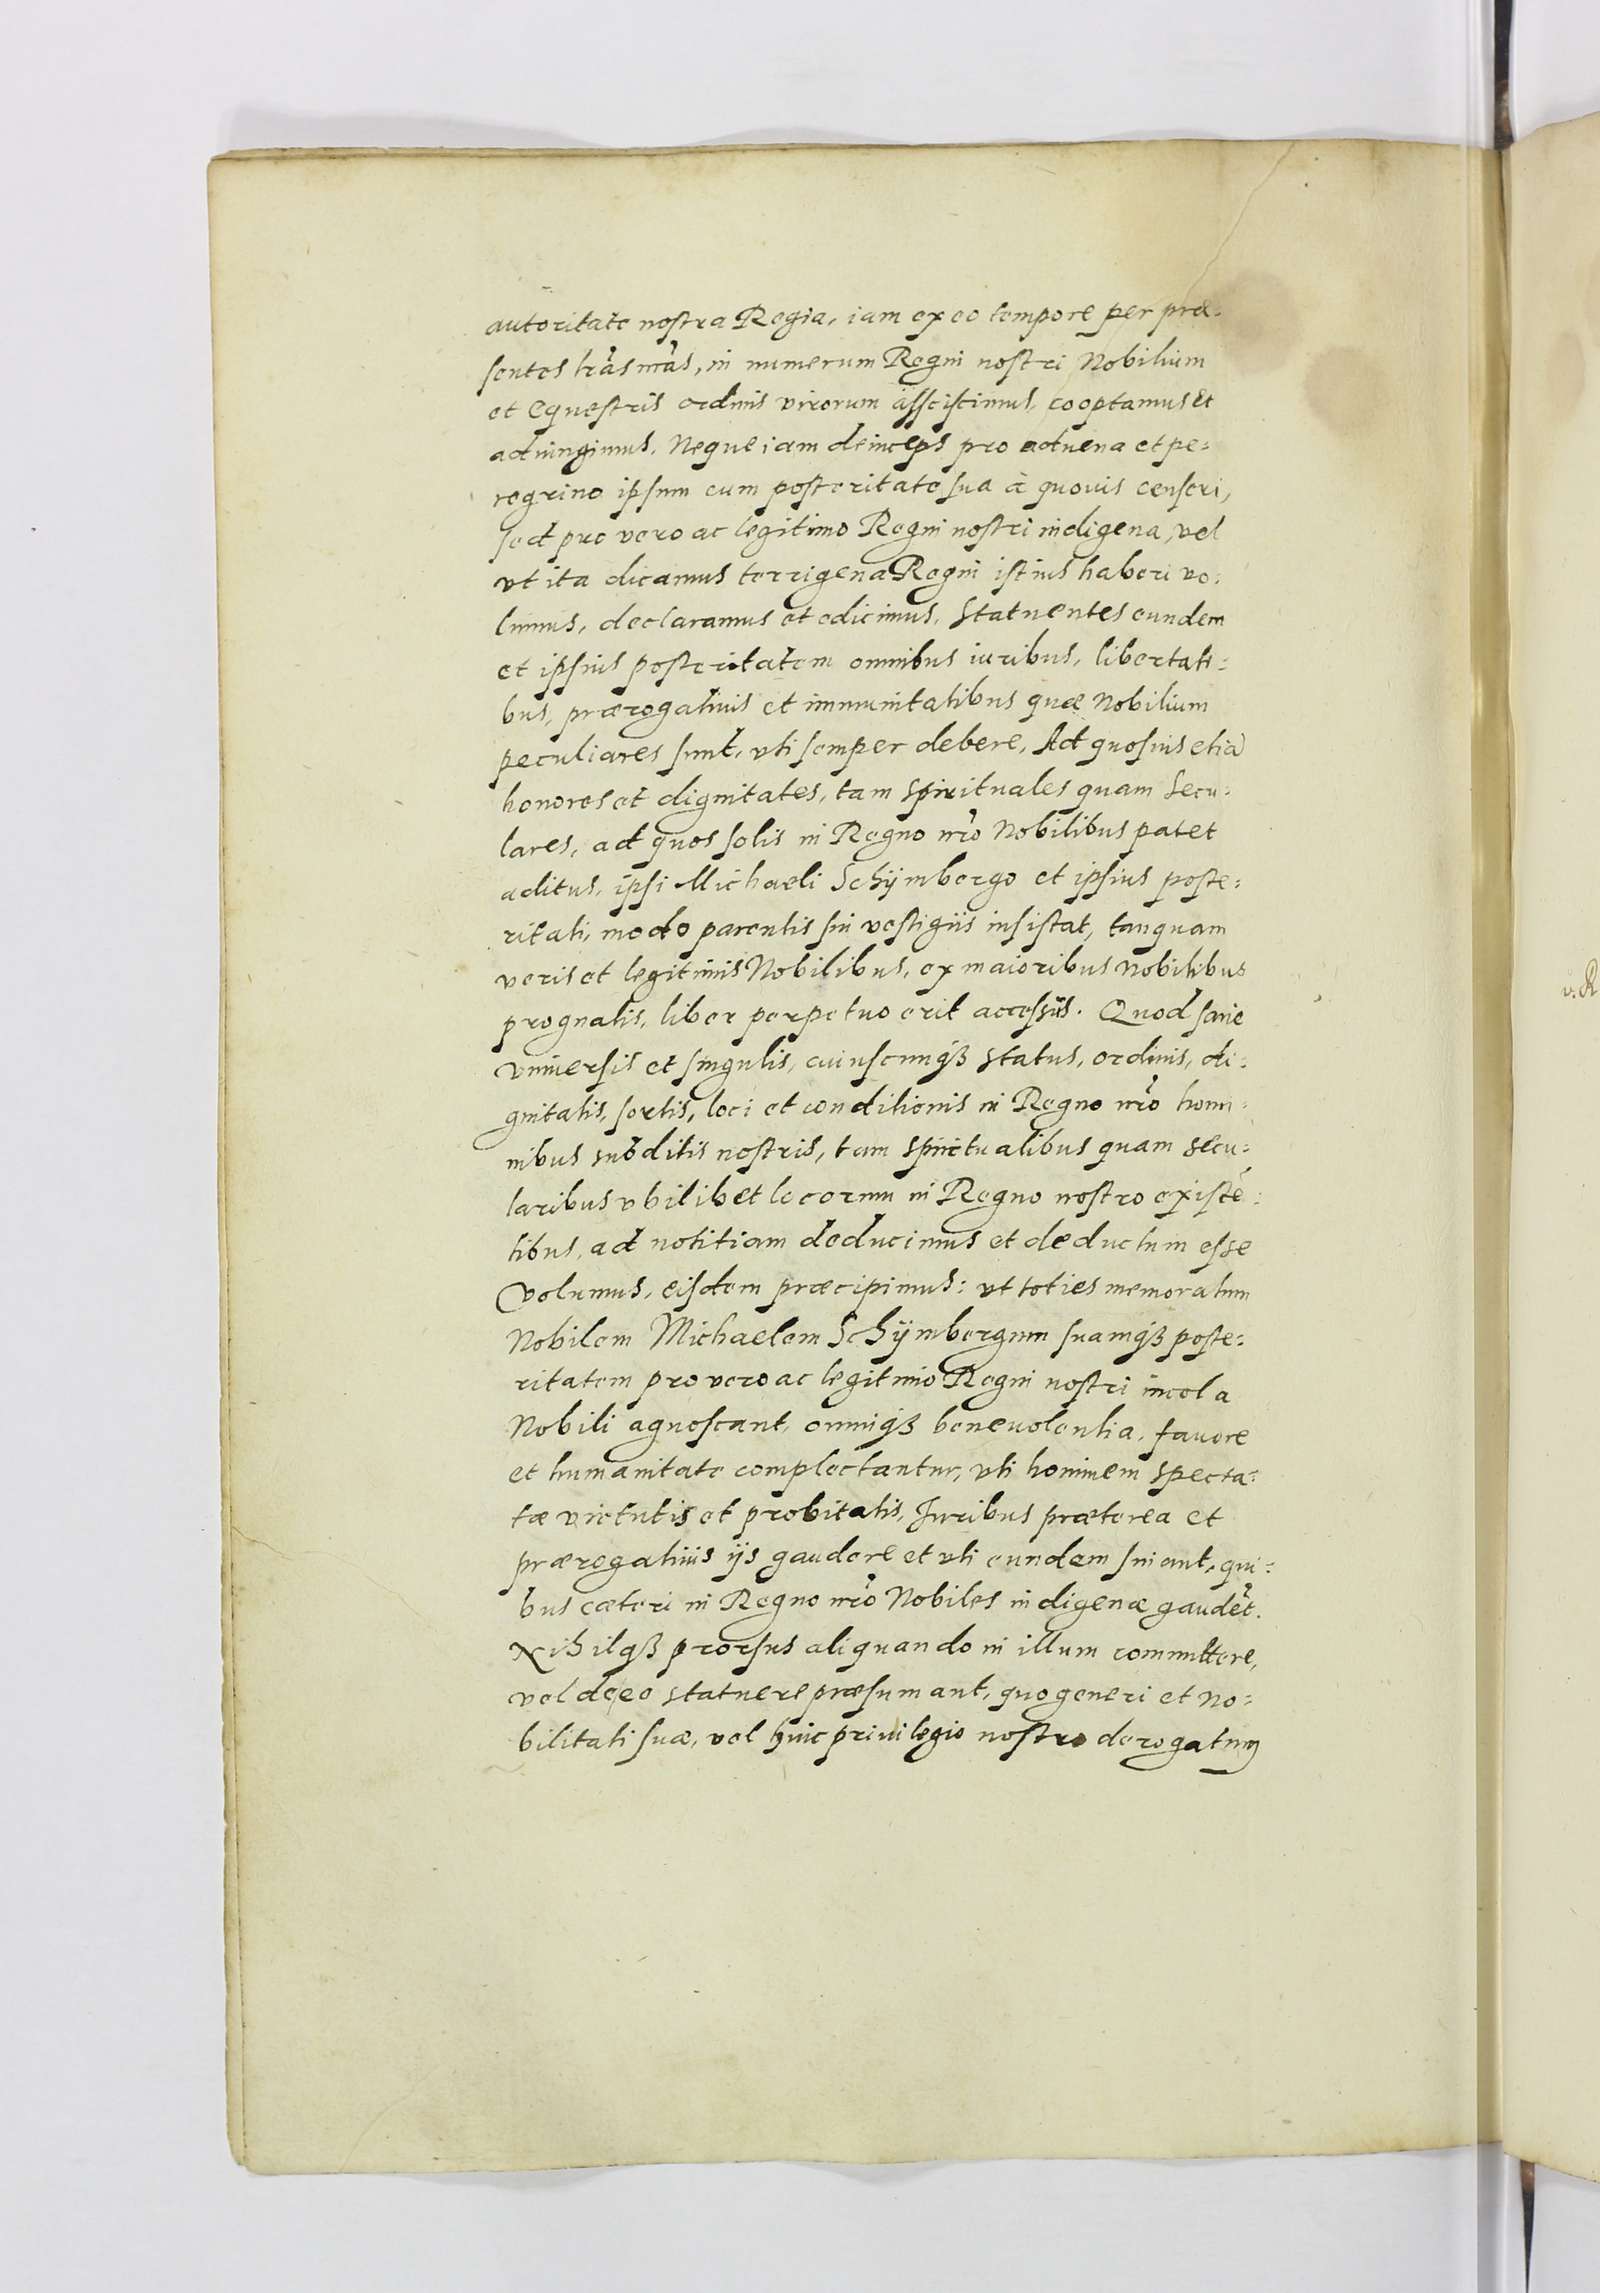 autoritate nostra Regia, iam ex eo tempore per præ-
sentes lr̃as nr̃as, in numerum Regni nostri Nobilium
et Equestris ordinis virorum assciscimus, cooptamus et
adiungimus. Neque iam deinceps pro aduena et pe-
regrino ipsum cum posteritate sua à quouis censeri,
sed pro vero ac legitimo Regni nostri indigena, vel
vt ita dicamus terrigena Regni istius haberi vo-
lumus, declaramus et edicimus. Statuentes eundem
et ipsius posteritatem omnibus iuribus, libertati-
bus, prærogatiuis et immunitatibus quæ Nobilium
peculiares sunt, vti semper debere, Ad quosuis etiã
honores et dignitates, tam spirituales quam secu-
lares, ad quos solis in Regno nr̃o Nobilibus patet
aditus, ipsi Michaeli Schÿmbergo et ipsius poste-
ritati, modo parentis sui vestigiis insistat, tanquam
veris et legitimis Nobilibus, ex maioribus Nobilibus
prognatis, liber perpetuo erit accessus. Quod sane
vniuersis et singulis, cuiuscunqꝫ status, ordinis, di-
gnitatis, sortis, loci et conditionis in Regno nr̃o homi-
nibus subditis nostris, tam spiritualibus quam secu-
laribus vbilibet locorum in Regno nostro existẽ-
tibus, ad notitiam deducimus et deductum esse
Volumus, eisdem præcipimus: vt toties memoratum
Nobilem Michaelem Schÿmbergum suamqꝫ poste-
ritatem pro vero ac legitimo Regni nostri incola
Nobili agnoscant, omniqꝫ beneuolentia, fauore
et humanitate complectantur, vti hominem specta-
tæ virtutis et probitatis, Iuribus præterea et
prærogatiuis ijs gaudere et vti eundem sinant, qui-
bus cæteri in Regno nr̃o Nobiles indigenæ gaudẽt.
Nihilqꝫ prorsus aliquando in illum committere,
vel de eo statuere præsumant, quo generi et No-
bilitati suæ, vel huic priuilegio nostro derogatum